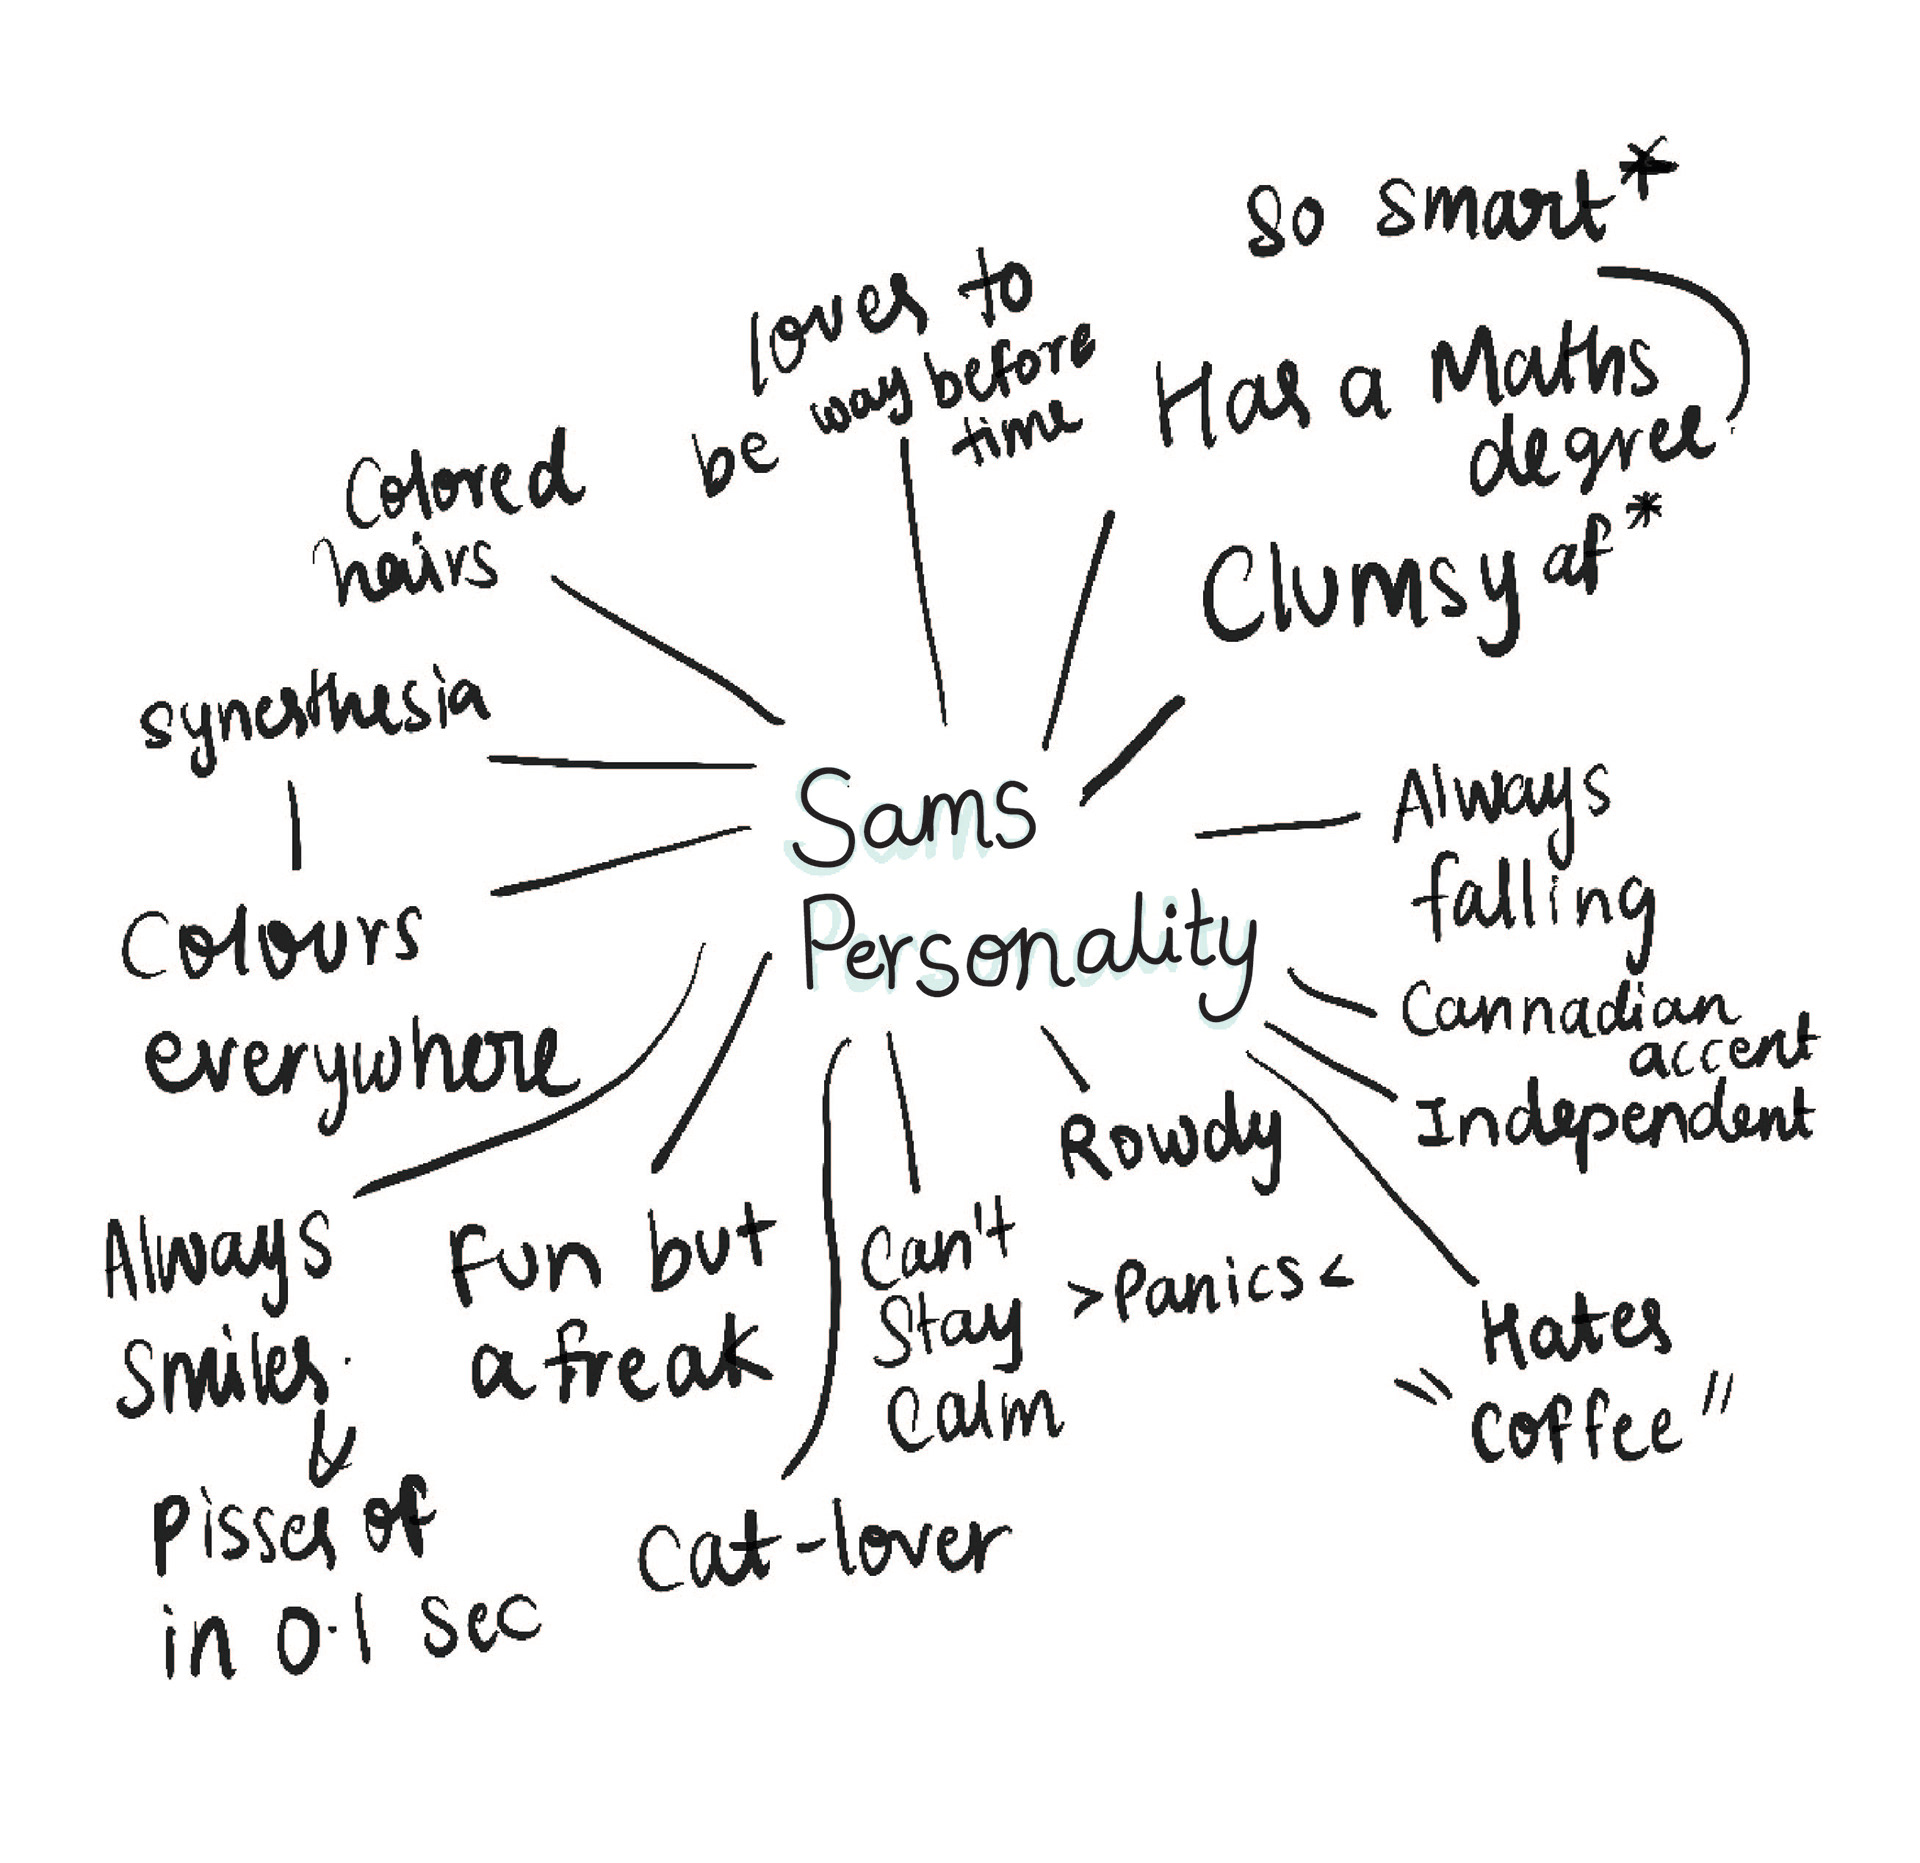 So smart*
Has a Maths
degree
loves to
be way before
time
Clumsy af*
Colored
hairs
synesthesia
Colours
everywhere
Sams
Personality
Always
falling
Cannadian
accent
Independent
Rowdy
>Panics<
Hates
"Coffee"
Can't
Stay
Calm
Cat-lover
Fun but
a freak
Always
Smiles
Pisses of
in 0.1 sec